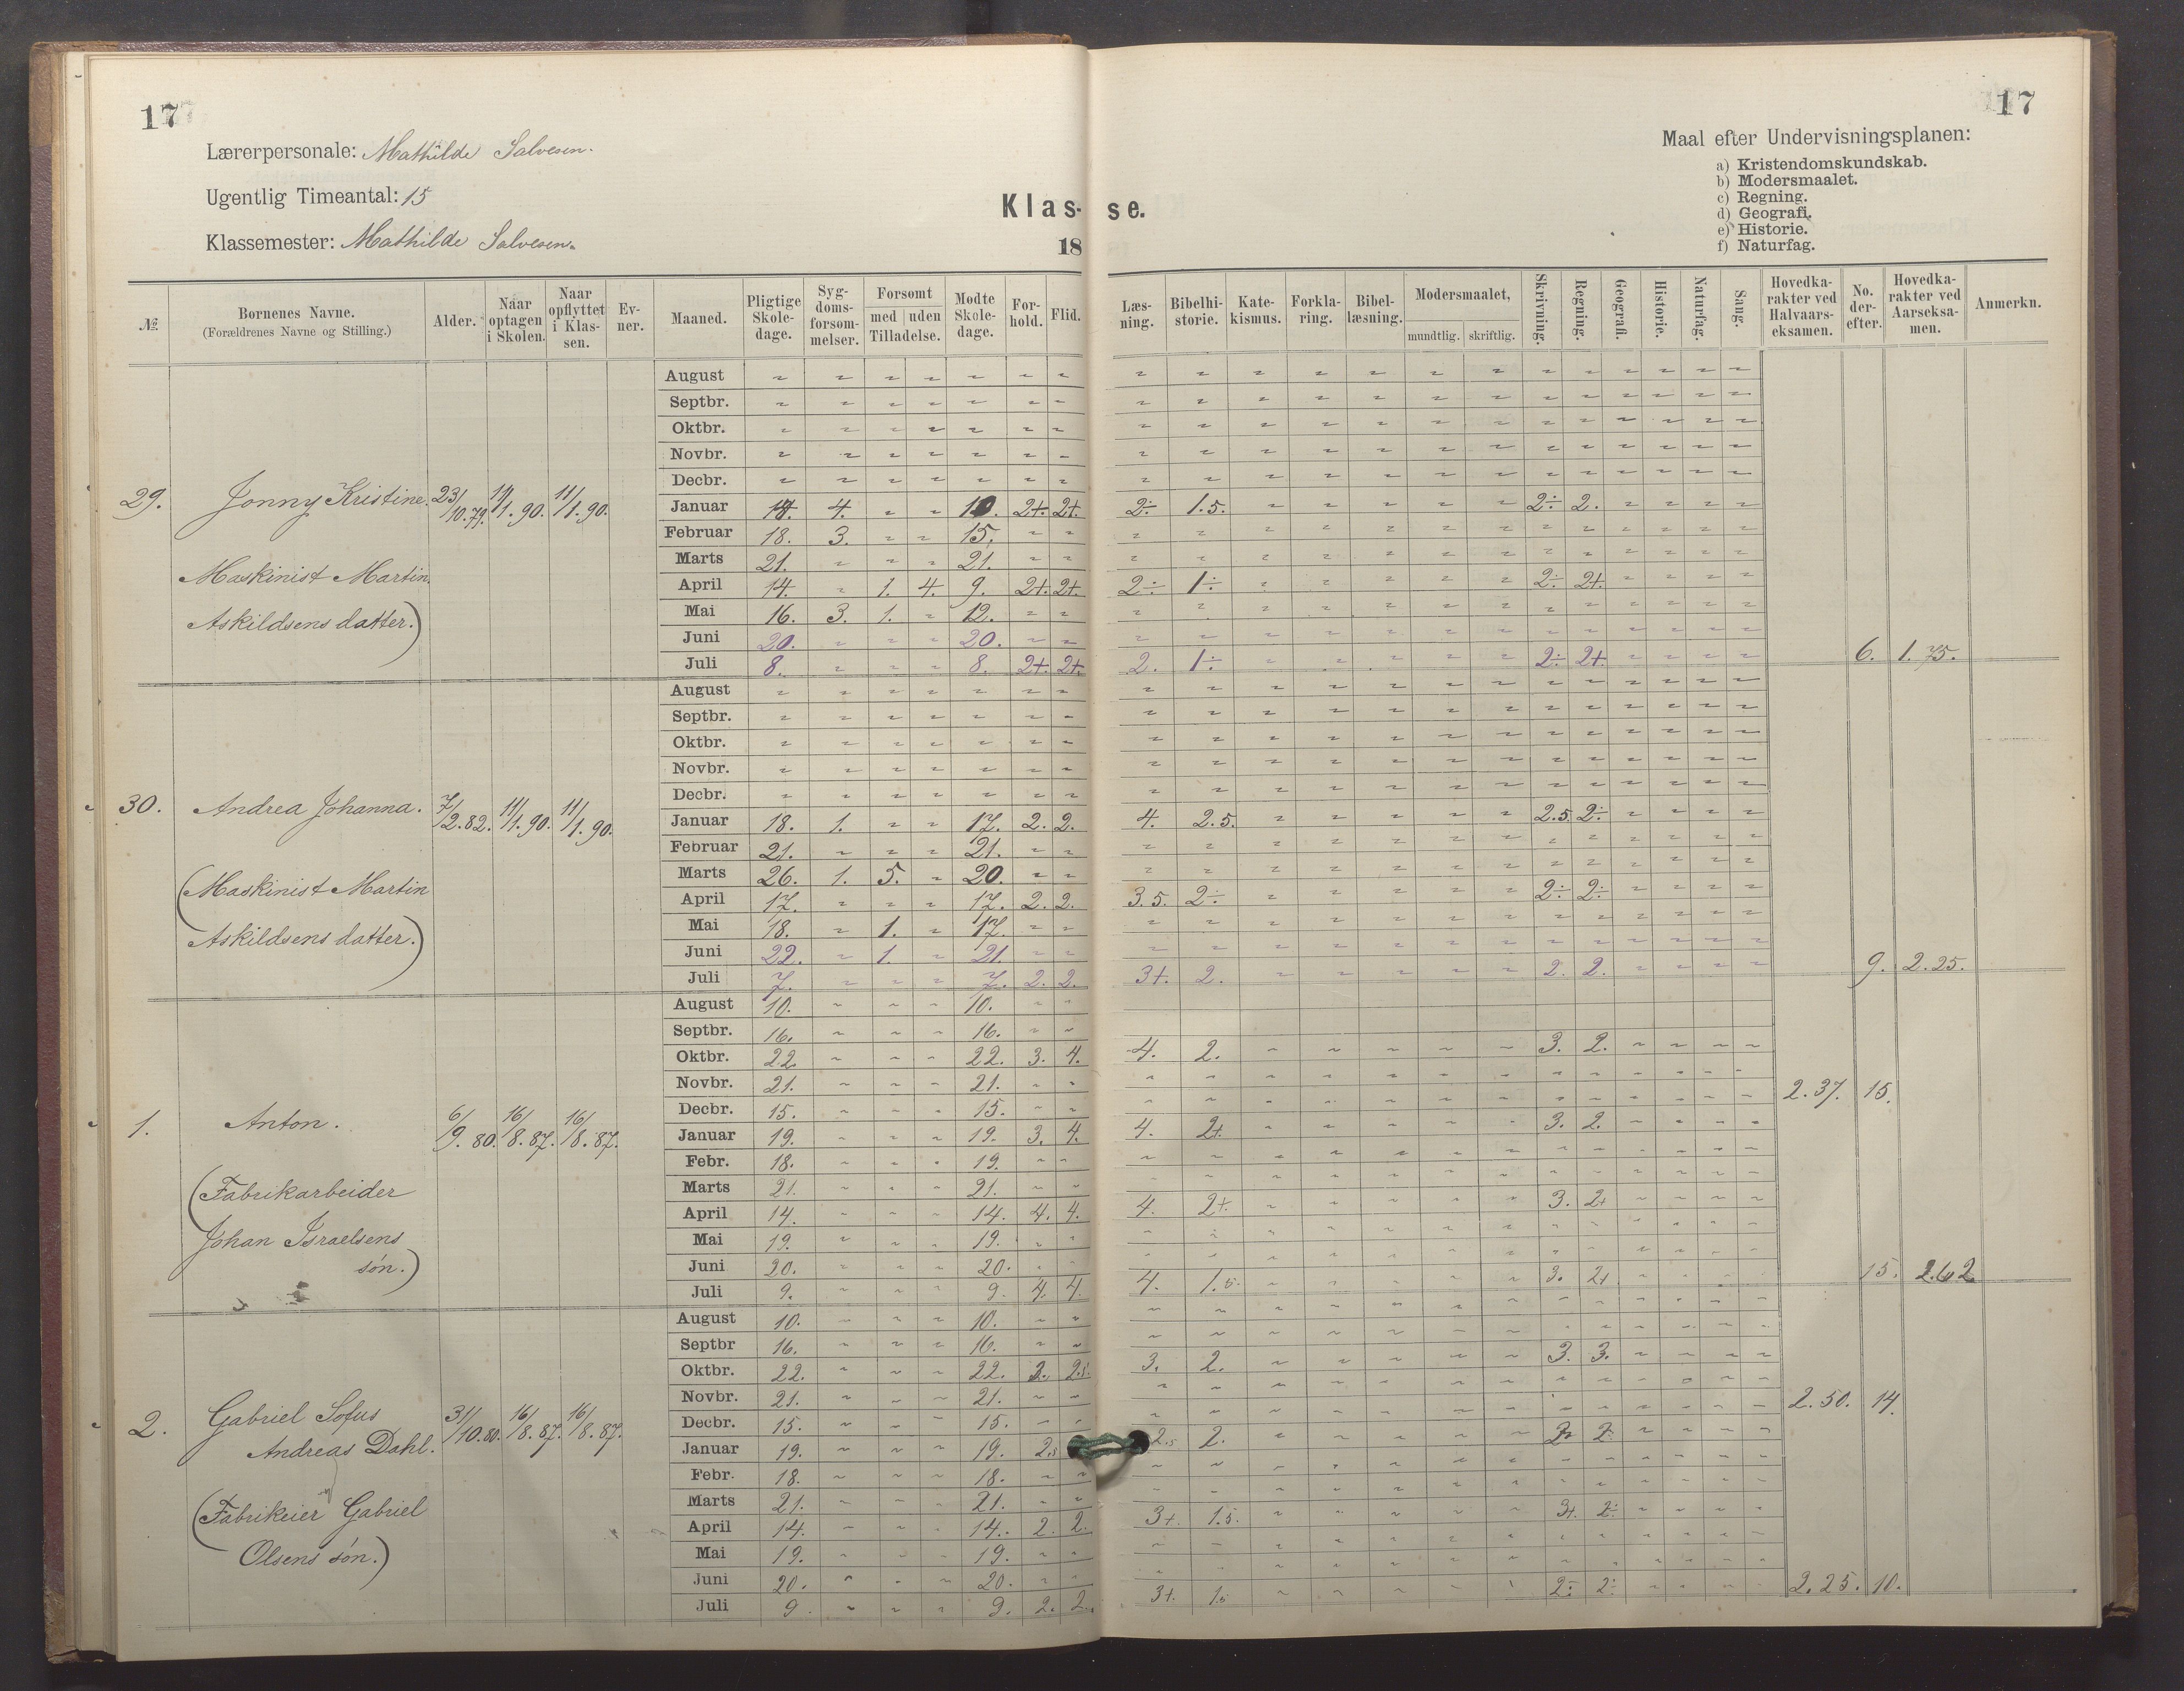 17
17
Lærerpersonale: Mathilde Salvesen.
Ugentlig Timeantal: 15
Klassemester: Mathilde Salvesen.
Klas-se.
18
Maal efter Undervisningsplanen:
a) Kristendomskundskab.
b) Modersmaalet.
c) Regning.
d) Geografi.
e) Historie.
f) Naturfag.
№ Børnenes Navne. (Forældrenes Navne og Stilling.) Alder. Naar optagen i Skolen. Naar opflyttet i Klassen. Evner. Maaned. Pligtige Skoledage. Sygdomsforsømmelser. Forsømt med uden Tilladelse. Mødte Skoledage. Forhold. Flid. Læsning. Bibelhistorie. Katekismus. Forklaring. Bibellæsning. Modersmaalet, mundtlig. skriftlig. Skrivning. Regning. Geografi. Historie. Naturfag. Sang. Hovedkarakter ved Halvaarseksamen. No. derefter. Hovedkarakter ved Aarseksamen. Anmerkn.
August
Septbr.
Oktbr.
Novbr.
Decbr.
29. Jonny Kristine. 23/10.79. 11/1.90. 11/1.90.
Januar 4. 10. 2+. 2+. 2÷ 1.5. 2÷ 2.
Februar 18. 3. 15.
Marts 21. 21.
Maskinist Martin
April 14. 1. 4. 9. 2+. 2+. 2÷ 1÷ 2÷ 2+.
Askildsens datter.)
Mai 16. 3. 1. 12.
Juni 20. 20.
Juli 8. 8. 2+. 2+. 2. 1÷ 2÷ 2+ 6. 1.75.
August
Septbr.
Oktbr.
Novbr.
Decbr.
30. Andrea Johanna. 7/2.82. 11/1.90. 11/1.90.
Januar 18. 1. 17. 2. 2. 4. 2.5. 2.5. 2÷
Februar 21. 21.
(Maskinist Martin
Marts 26. 1. 5. 20.
April 17. 17. 2. 2. 3.5. 2÷ 2÷ 2÷
Askildsens datter.)
Mai 18. 1. 17.
Juni 22. 1. 21.
Juli 7. 7. 2. 2. 3+. 2. 2. 2. 9. 2.25.
August 10. 10.
Septbr. 16. 16.
Oktbr. 22 22. 3. 4. 4. 2. 3. 2.
Novbr. 21. 21.
Decbr. 15. 15. 2.37. 15.
1. Anton. 6/9.80. 16/8.87. 16/8.87.
Januar 19. 19. 3. 4. 4. 2+. 3. 2.
Febr. 18. 19.
(Fabrikarbeider
Marts 21. 21.
April 14. 14. 4. 4. 4. 2+. 3. 2+
Johan Israelsens
søn.)
Mai 19. 19.
Juni 20. 20.
Juli 9. 9. 4. 4. 4. 1.5. 3. 2+ 15. 2.62
August 10. 10.
Septbr 16. 16.
Oktbr. 22. 22. 2. 2.5. 3. 2. 3. 3.
Novbr. 21. 21.
2. Gabriel Sofus
Andreas Dahl. 31/10.80. 16/8.87. 16/8.87.
Decbr. 15. 15. 2.50. 14.
Januar 19. 19. 2.5 2.5 2.
Febr. 18. 18.
(Fabrikeier Gabriel
Marts 21. 21.
April 14. 14. 2. 2. 3+. 1.5. 3+. 2÷
Olsens søn.)
Mai 19. 19.
Juni 20. 20.
Juli 9. 9. 2. 2. 3+. 1.5 2÷ 2÷ 2.25. 10.